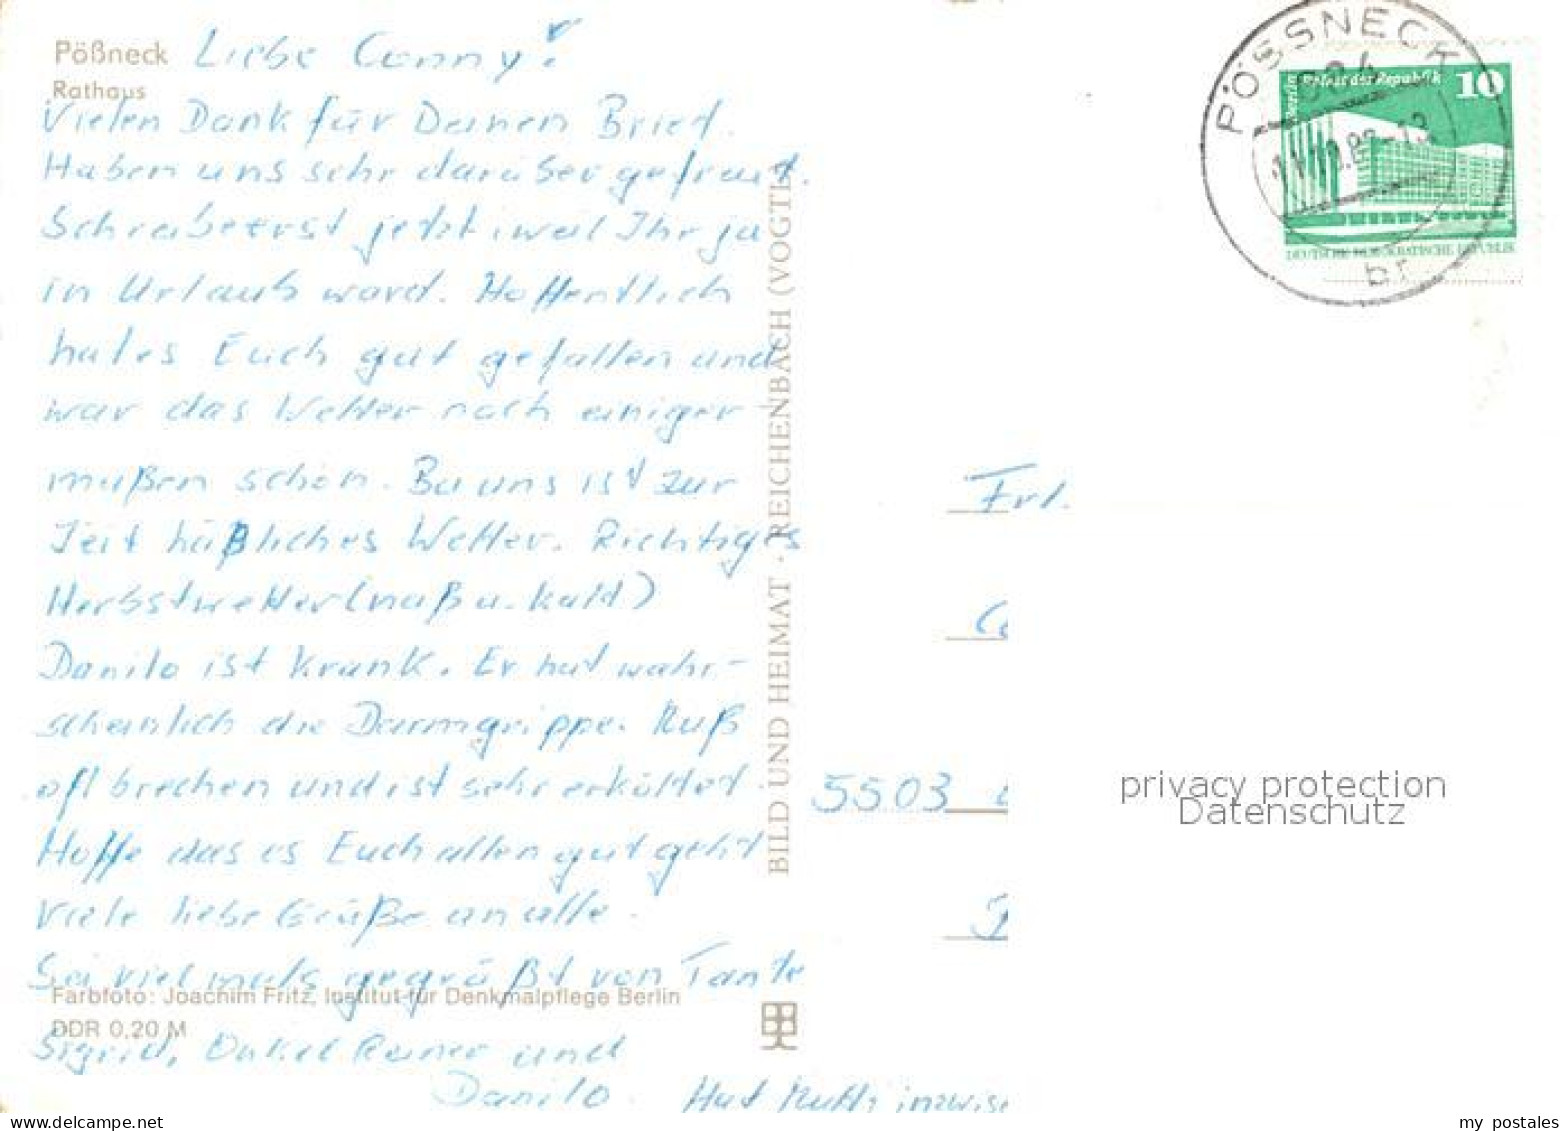 Pößneck
Rathaus
Liebe Conny!
Vielen Dank für Deinen Brief.
Haben uns sehr darüber gefreut.
Schreibe erst jetzt, weil Ihr ja
in Urlaub ward. Hoffentlich
hat es Euch gut gefallen und
war das Wetter noch einiger
maßen schön. Bei uns ist zur
Zeit häßliches Wetter. Richtiges
Herbstwetter (naß u. kalt)
Danilo ist krank. Er hat wahr-
scheinlich die Darmgrippe. Muß
oft brechen und ist sehr erkältet.
Hoffe das es Euch allen gut geht
Viele liebe Grüße an alle.
Sei vielmals gegrüßt von Tante
Sigrid, Onkel Rainer und
Danilo. Hat Mutti inzwisc
Farbfoto: Joachim Fritz, Institut für Denkmalpflege Berlin
DDR 0,20 M
BILD UND HEIMAT · REICHENBACH (VOGTL
PÖSSNECK
br
Palast der Republik 10
DEUTSCHE DEMOKRATISCHE REPUBLIK
Frl.
5503
privacy protection
Datenschutz
www.delcampe.net
my_postales